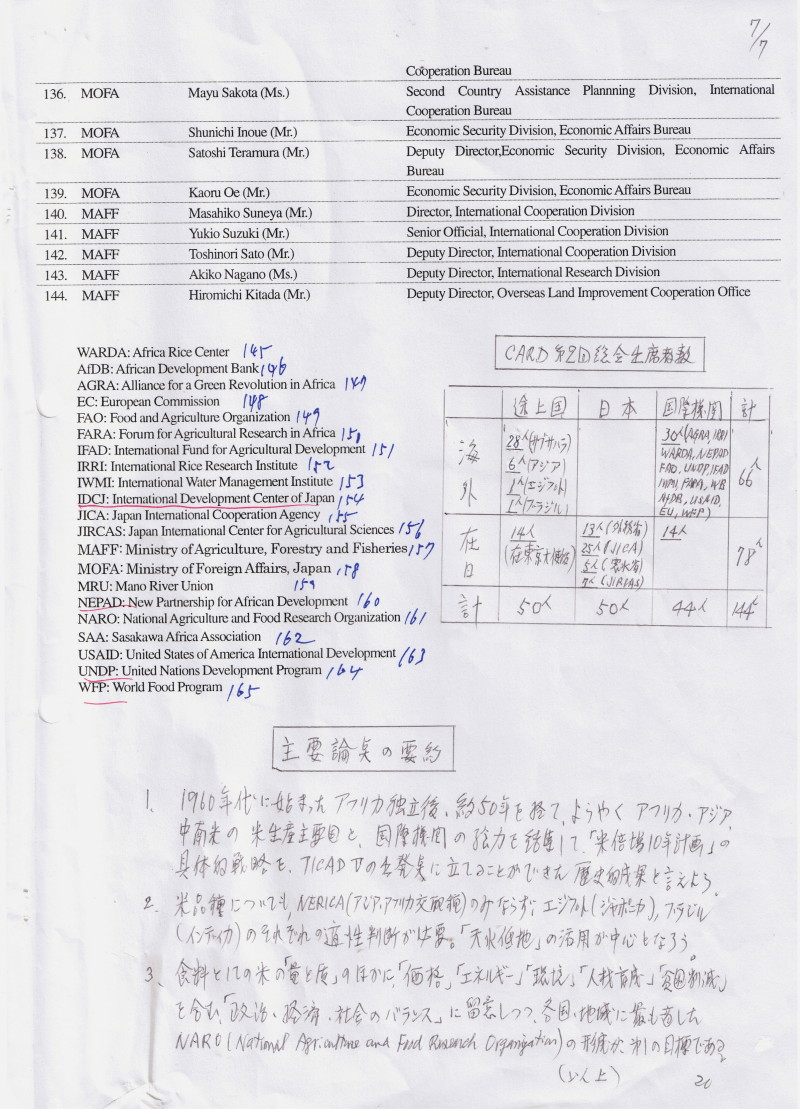 7/7
Cooperation Bureau
136. MOFA Mayu Sakota (Ms.) Second Country Assistance Plannning Division, International
Cooperation Bureau
137. MOFA Shunichi Inoue (Mr.) Economic Security Division, Economic Affairs Bureau
138. MOFA Satoshi Teramura (Mr.) Deputy Director,Economic Security Division, Economic Affairs
Bureau
139. MOFA Kaoru Oe (Mr.) Economic Security Division, Economic Affairs Bureau
140. MAFF Masahiko Suneya (Mr.) Director, International Cooperation Division
141. MAFF Yukio Suzuki (Mr.) Senior Official, International Cooperation Division
142. MAFF Toshinori Sato (Mr.) Deputy Director, International Cooperation Division
143. MAFF Akiko Nagano (Ms.) Deputy Director, International Research Division
144. MAFF Hiromichi Kitada (Mr.) Deputy Director, Overseas Land Improvement Cooperation Office
WARDA: Africa Rice Center 145
AfDB: African Development Bank 146
AGRA: Alliance for a Green Revolution in Africa 147
EC: European Commission 148
FAO: Food and Agriculture Organization 149
FARA: Forum for Agricultural Research in Africa 150
IFAD: International Fund for Agricultural Development 151
IRRI: International Rice Research Institute 152
IWMI: International Water Management Institute 153
IDCJ: International Development Center of Japan 154
JICA: Japan International Cooperation Agency 155
JIRCAS: Japan International Center for Agricultural Sciences 156
MAFF: Ministry of Agriculture, Forestry and Fisheries 157
MOFA: Ministry of Foreign Affairs, Japan 158
MRU: Mano River Union 159
NEPAD: New Partnership for African Development 160
NARO: National Agriculture and Food Research Organization 161
SAA: Sasakawa Africa Association 162
USAID: United States of America International Development 163
UNDP: United Nations Development Program 164
WFP: World Food Program 165
CARD第2回総会出席者数
途上国 日本 国際機関 計
海外
28人(サブサハラ)
6人(アジア)
1人(エジプト)
1人(ブラジル)
30人(AGRA, IRRI
WARDA, NEPAD
FAO, UNDP, IFAD
IWMI, FARA, WB
AfDB, USAID,
EU, WFP)
66人
在日
14人
(在東京大使館)
13人(外務省)
25人(JICA)
5人(農水省)
7人(JIRCAS)
14人
78人
計 50人 50人 44人 144人
主要論点の要約
1. 1960年代に始まったアフリカ独立後、約50年を経て、ようやくアフリカ・アジア,
中南米の米生産主要国と、国際機関の総力を結集して、「米倍増10年計画」の
具体的戦略を、TICAD Ⅳの出発点に立てることができた歴史的成果と言えよう。
2. 米品種についても、NERICA(アジア・アフリカ交配種)のみならず、エジプト(ジャポニカ), ブラジル
(インディカ)のそれぞれの適性判断が必要。「天水低地」の活用が中心となろう。
3. 食料としての米の「量と質」のほかに、「価格」「エネルギー」「環境」「人材育成」「貧困削減」
を含む、「政治・経済・社会のバランス」に留意しつつ、各国・地域に最も適した
NARO (National Agriculture and Food Research Organization) の形成が、次の目標である。
(以上)
20